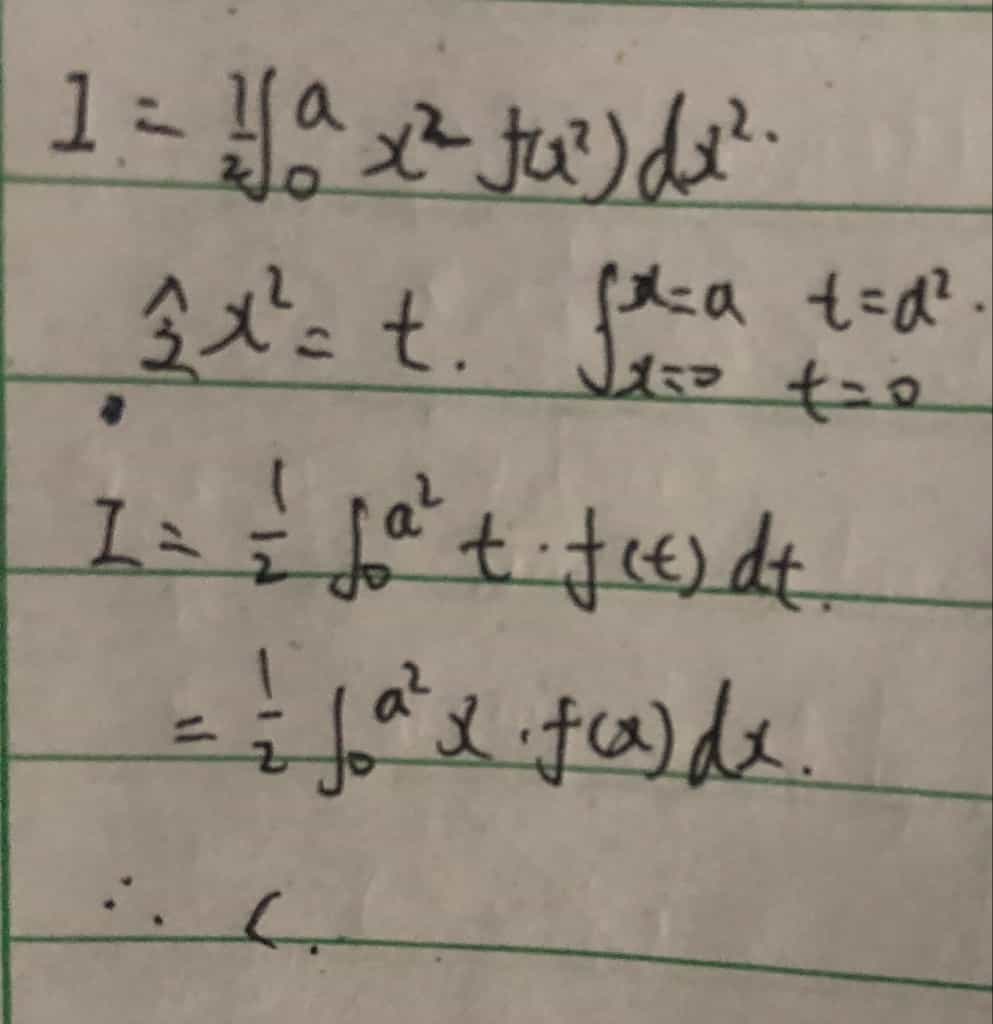 I = ½∫₀ᵃ x² f(x²) dx².
令 x² = t. { x=a t=a².
x=0 t=0
I = ½ ∫₀^{a²} t · f(t) dt.
= ½ ∫₀^{a²} x · f(x) dx.
∴ C.